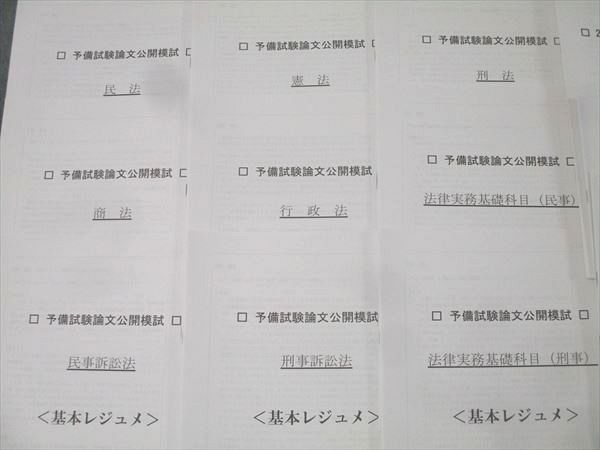 □ 予備試験論文公開模試 □
民 法
□ 予備試験論文公開模試 □
憲 法
□ 予備試験論文公開模試 □
刑 法
□ 2
□ 予備試験論文公開模試 □
商 法
□ 予備試験論文公開模試
行 政 法
□ 予備試験論文公開模試 □
法律実務基礎科目（民事）
□ 予備試験論文公開模試 □
民事訴訟法
＜基本レジュメ＞
□ 予備試験論文公開模試
刑事訴訟法
＜基本レジュメ＞
□ 予備試験論文公開模試 □
法律実務基礎科目（刑事）
＜基本レジュメ＞